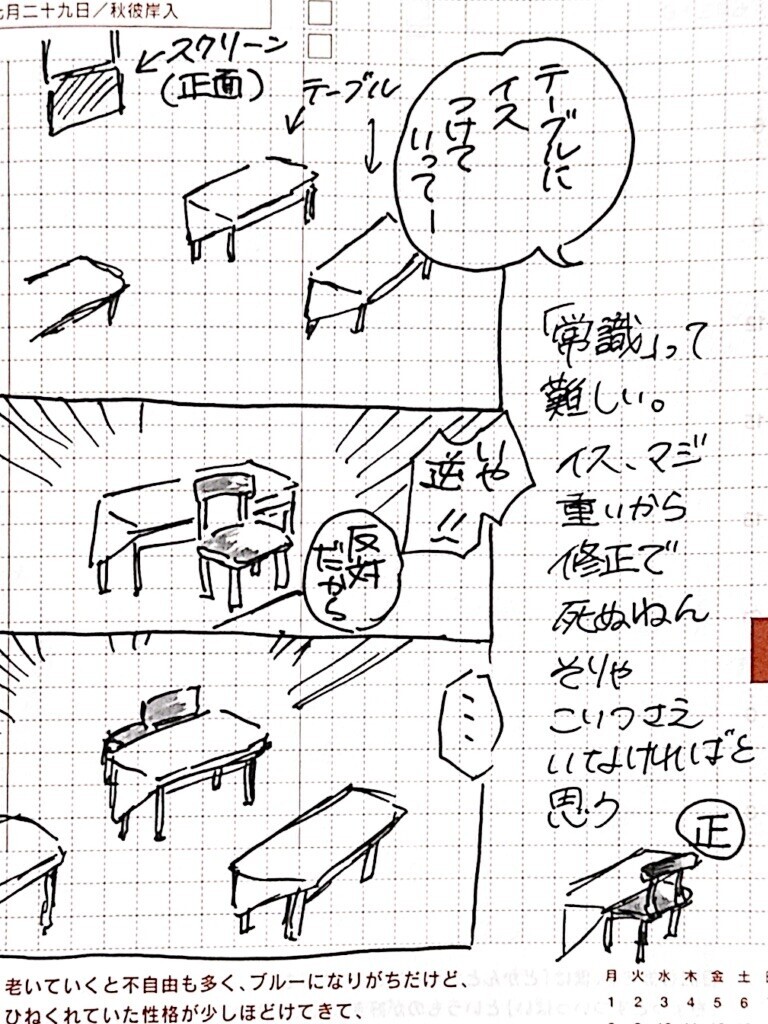 七月二十九日／秋彼岸入
スクリーン
(正面)
テーブル
テーブルに
イス
つけて
いってー
いや
逆!!
反対
だから
「常識」って
難しい。
イス、マジ
重いから
修正で
死ぬねん
そりゃ
こいつさえ
いなければと
思う
正
老いていくと不自由も多く、ブルーになりがちだけど、
ひねくれていた性格が少しほどけてきて、
月 火 水 木 金 土
1 2 3 4 5 6